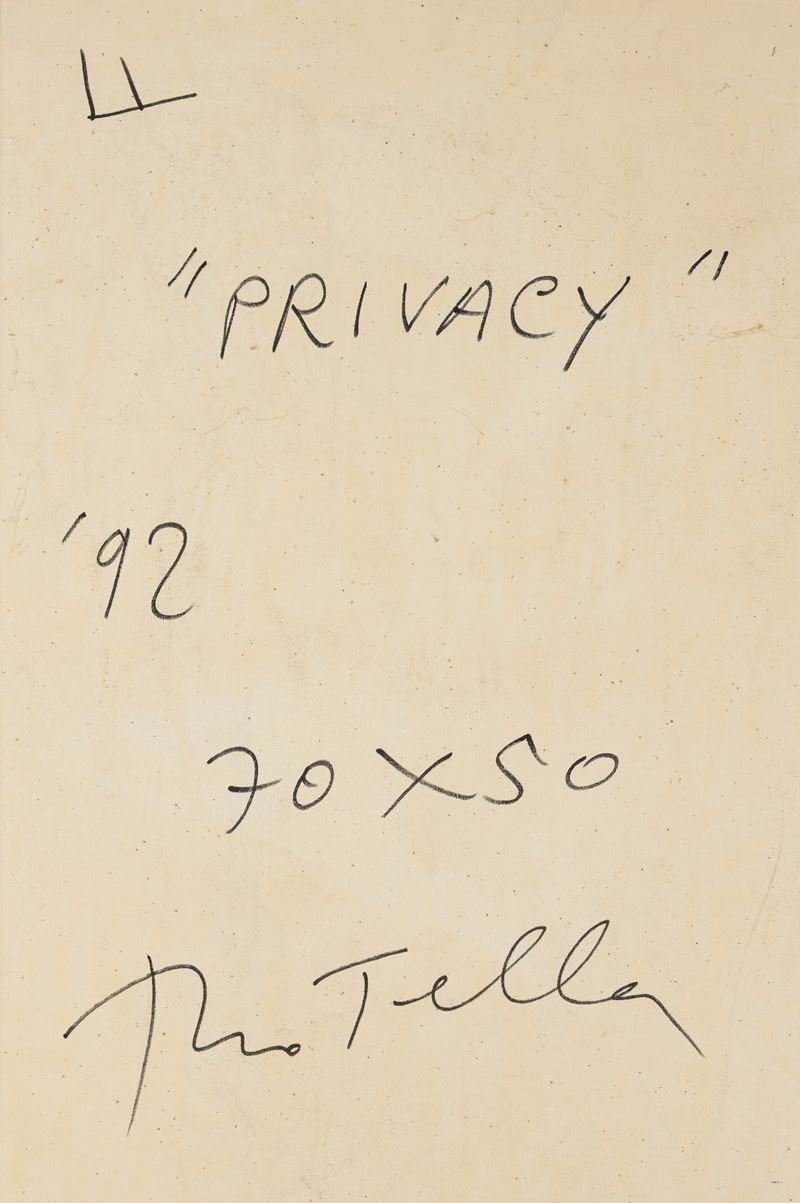 F
"PRIVACY"
'92
70X50
Rotella